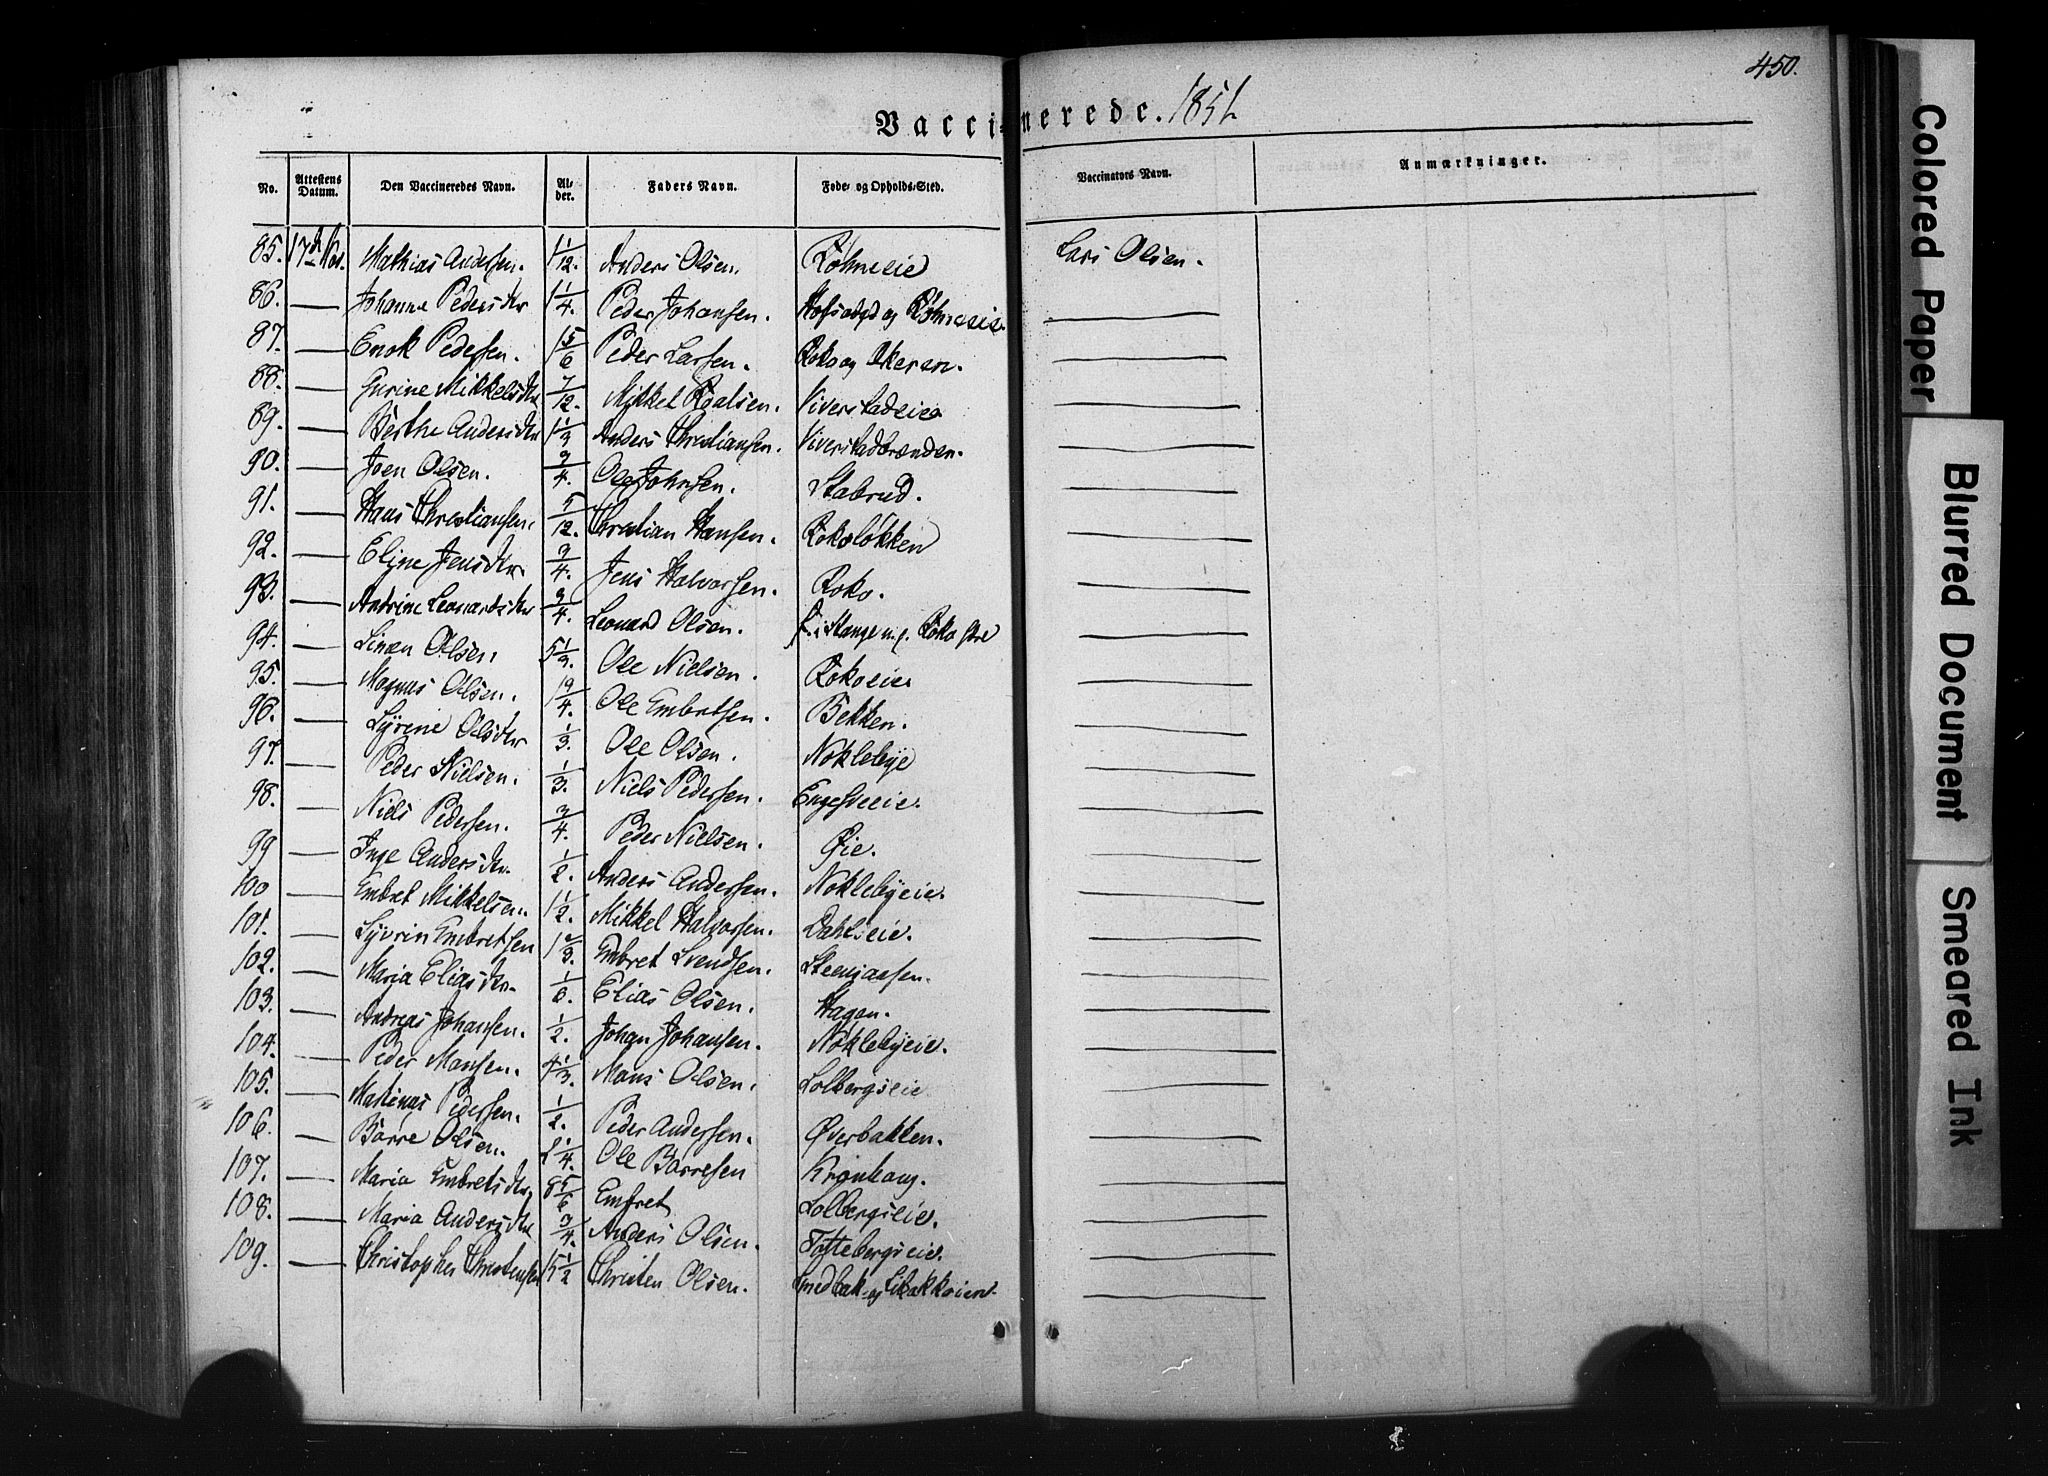 450.
Vaccinerede. 1851
No. Attestens Datum. Den Vaccineredes Navn. Alder. Faders Navn. Føde- og Opholds-Sted. Vaccinators Navn. Anmærkninger.
85. 17de Nov. Mathias Andersen. 1 1/12. Anders Olsen. Røhneeie Lars Olsen.
86. — Johanne Pedersdtr 1 1/4. Peder Johansen. og Røhneeie —
87. — Enok Pedersen. 1 5/6 Peder Larsen. Roko og —
88. — Gurine Mikkelsdtr 7/12. Mikkel Roalsen. Viverstadeie —
89. — Berthe Andersdtr 1 1/3 Anders Christiansen. Viverstadbrænden. —
90. — Joen Olsen. 3/4. Ole Johnsen. Stabrud. —
91. — Hans Christiansen. 5/12. Christian Hansen. Rokoløkken —
92. — Eline Jensdtr 3/4. Jens Halvorsen. Roko. —
93. — Andrine Leonardsdtr 3/4. Leonard Olsen. f. i Stange Roko —
94. — Olsen. 5 1/3. Ole Nielsen. Rokoeie —
95. — Magnus Olsen. Ole Embretsen. Bekken. —
96. — Syvrine Olsdtr 1/3. Ole Olsen. Noklebye —
97. — Peder Nielsen. 1/3. Niels Pedersen. —
98. — Niels Pedersen. 3/4. Peder Nielsen. Øie. —
99 — Inge Andersdtr. 1/2. Anders Andersen. Noklebyeie. —
100 — Embret Mikkelsen. 1 1/2. Mikkel Halvorsen. Dahlseie. —
101. — Syvrin Embretsen Embret Svendsen. —
102. — Maria Eliasdtr Elias Olsen. Hagen. —
103. — Andreas Johansen. 1/2. Johan Johansen. Noklebyeie. —
104. — Peder Mansen. 4 1/3. Mans Olsen. Lolbergseie —
105. — Matinus Pedersen. 1/2. Peder Andersen. Øverbakken. —
106. — Børre Olsen. 2 1/4. Ole Børresen Kronhaug. —
107. — Maria Embretsdtr 8 5/6 Embret Lolbergseie. —
108. — Maria Andersdtr 3/4. Anders Olsen. Toftebergseie. —
109. — Christopher Christensen 15 1/2 Christen Olsen. Smedbak og —
Colored Paper
Blurred Document
Smeared Ink